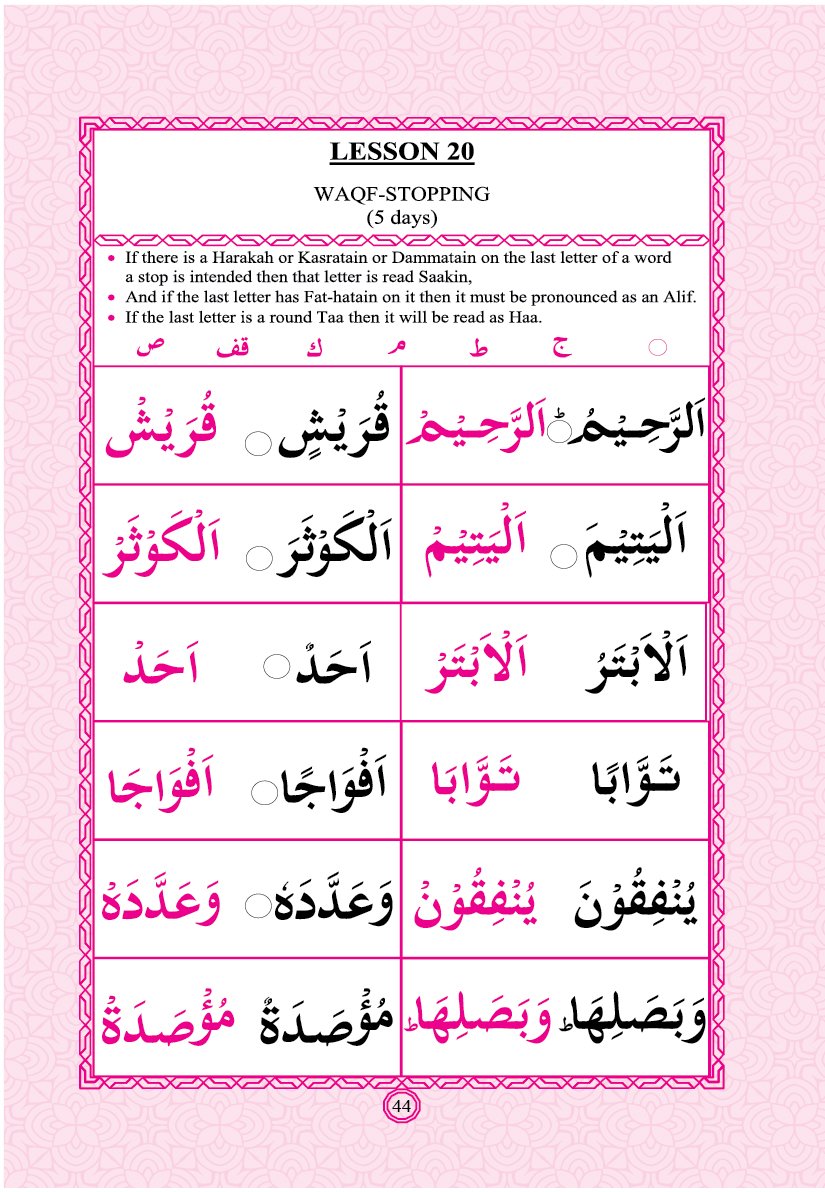 LESSON 20
WAQF-STOPPING
(5 days)
• If there is a Harakah or Kasratain or Dammatain on the last letter of a word
a stop is intended then that letter is read Saakin,
• And if the last letter has Fat-hatain on it then it must be pronounced as an Alif.
• If the last letter is a round Taa then it will be read as Haa.
○ ج ط م ك قف ص
اَلرَّحِيْمُ ○ؕ اَلرَّحِيْمْ قُرَيْشٍ ○ قُرَيْشْ
اَلْيَتِيْمَ ○ اَلْيَتِيْمْ اَلْكَوْثَرَ ○ اَلْكَوْثَرْ
اَلْاَبْتَرُ اَلْاَبْتَرْ اَحَدٌ ○ اَحَدْ
تَوَّابًا تَوَّابَا اَفْوَاجًا ○ اَفْوَاجَا
يُنْفِقُوْنَ يُنْفِقُوْنْ وَعَدَّدَهٗ ○ وَعَدَّدَهْ
وَبَصَلِهَاؕ وَبَصَلِهَاؕ مُؤْصَدَةٌ مُؤْصَدَةْ
44